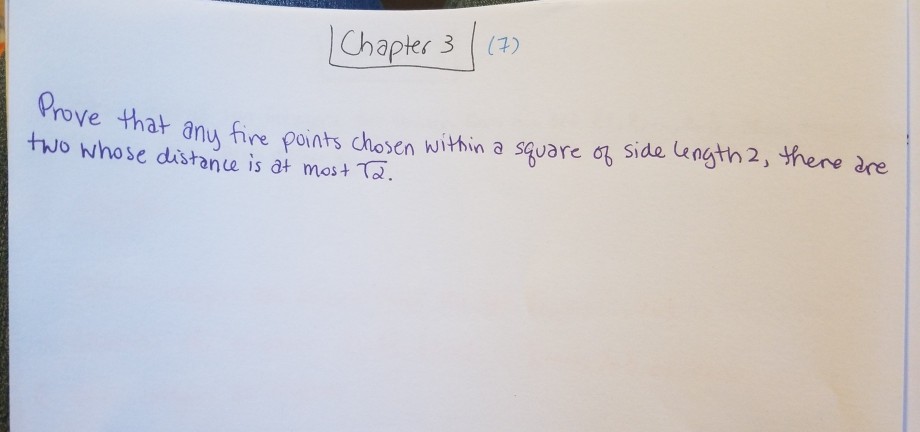 Chapter 3 (7)
Prove that any five points chosen within a square of side length 2, there are
two whose distance is at most √2.